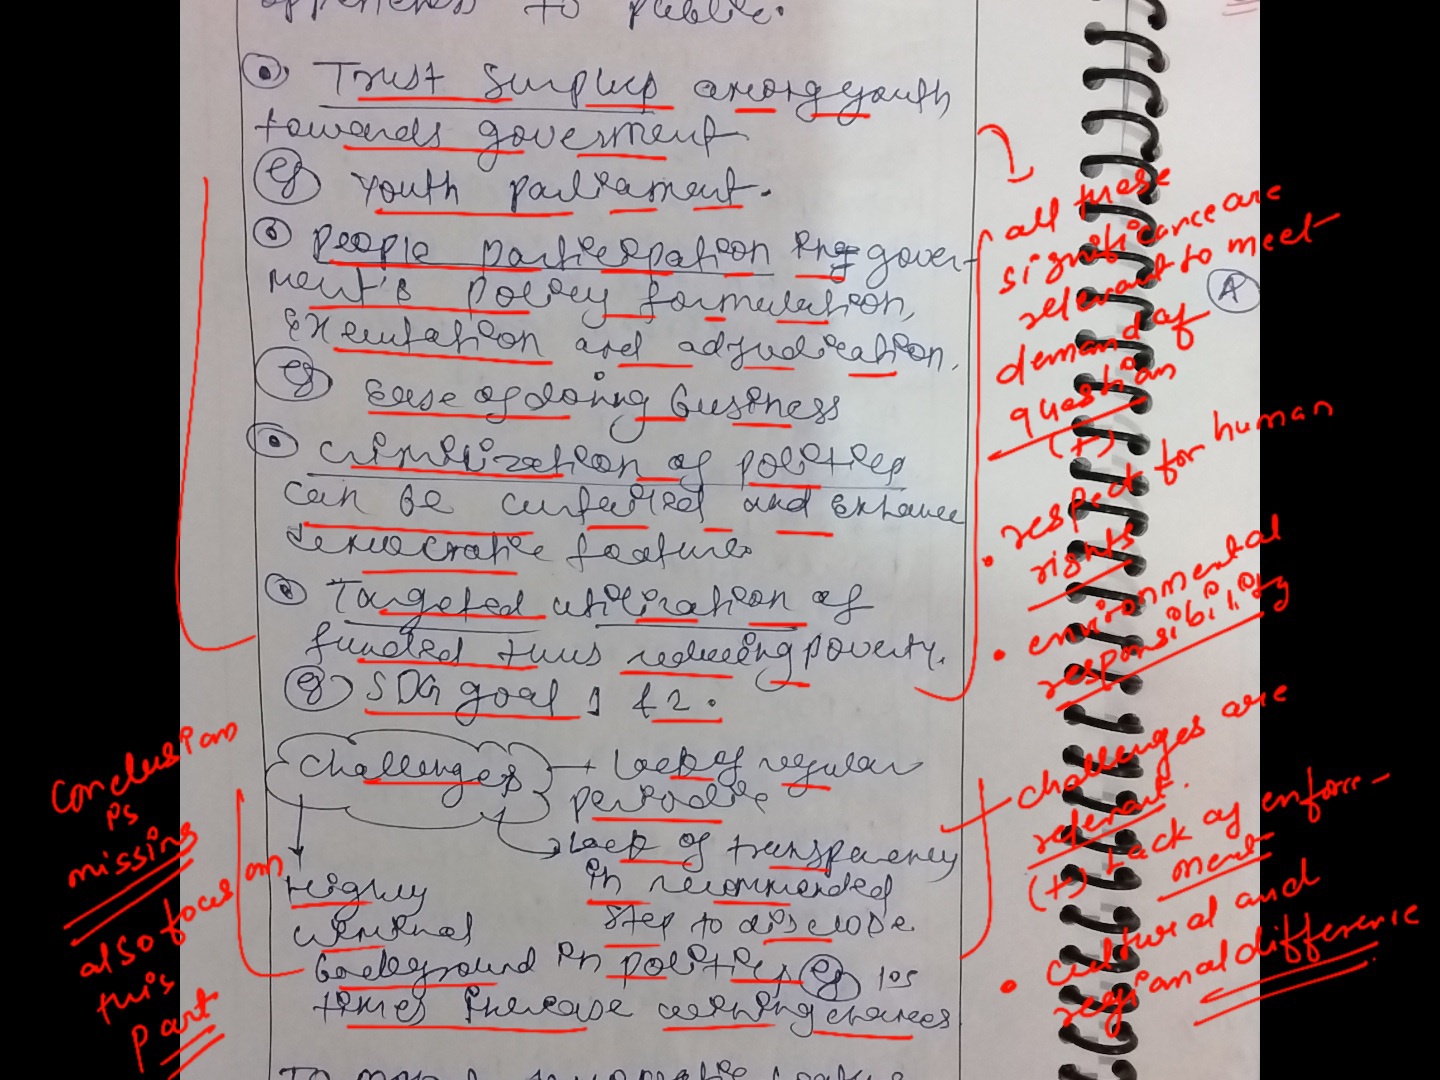 to public.
Trust Surplus among youth
towards goverment
eg Youth parliament.
People participation in gover-
ment's policy formulation,
and adjudication.
eg Ease of doing business
of politics
can be curtailed and Enhance
democratic feature.
Targeted utilization of
funded thus reducing poverty.
eg SDG goal 1 & 2.
Challenges → Lack of regular
periodic
Lack of transparency
in recommended
step to disclose
Highly
criminal
background in politics eg 10s
times increase winning chances
all these
significance are
relevant to meet
demand of
question
(+)
• respect for human
rights
• environmental
responsibility
A
challenges are
relevant.
(+) Lack of enforce-
ment
• cultural and
regional difference
Conclusion
is
missing
also focus on
this
part